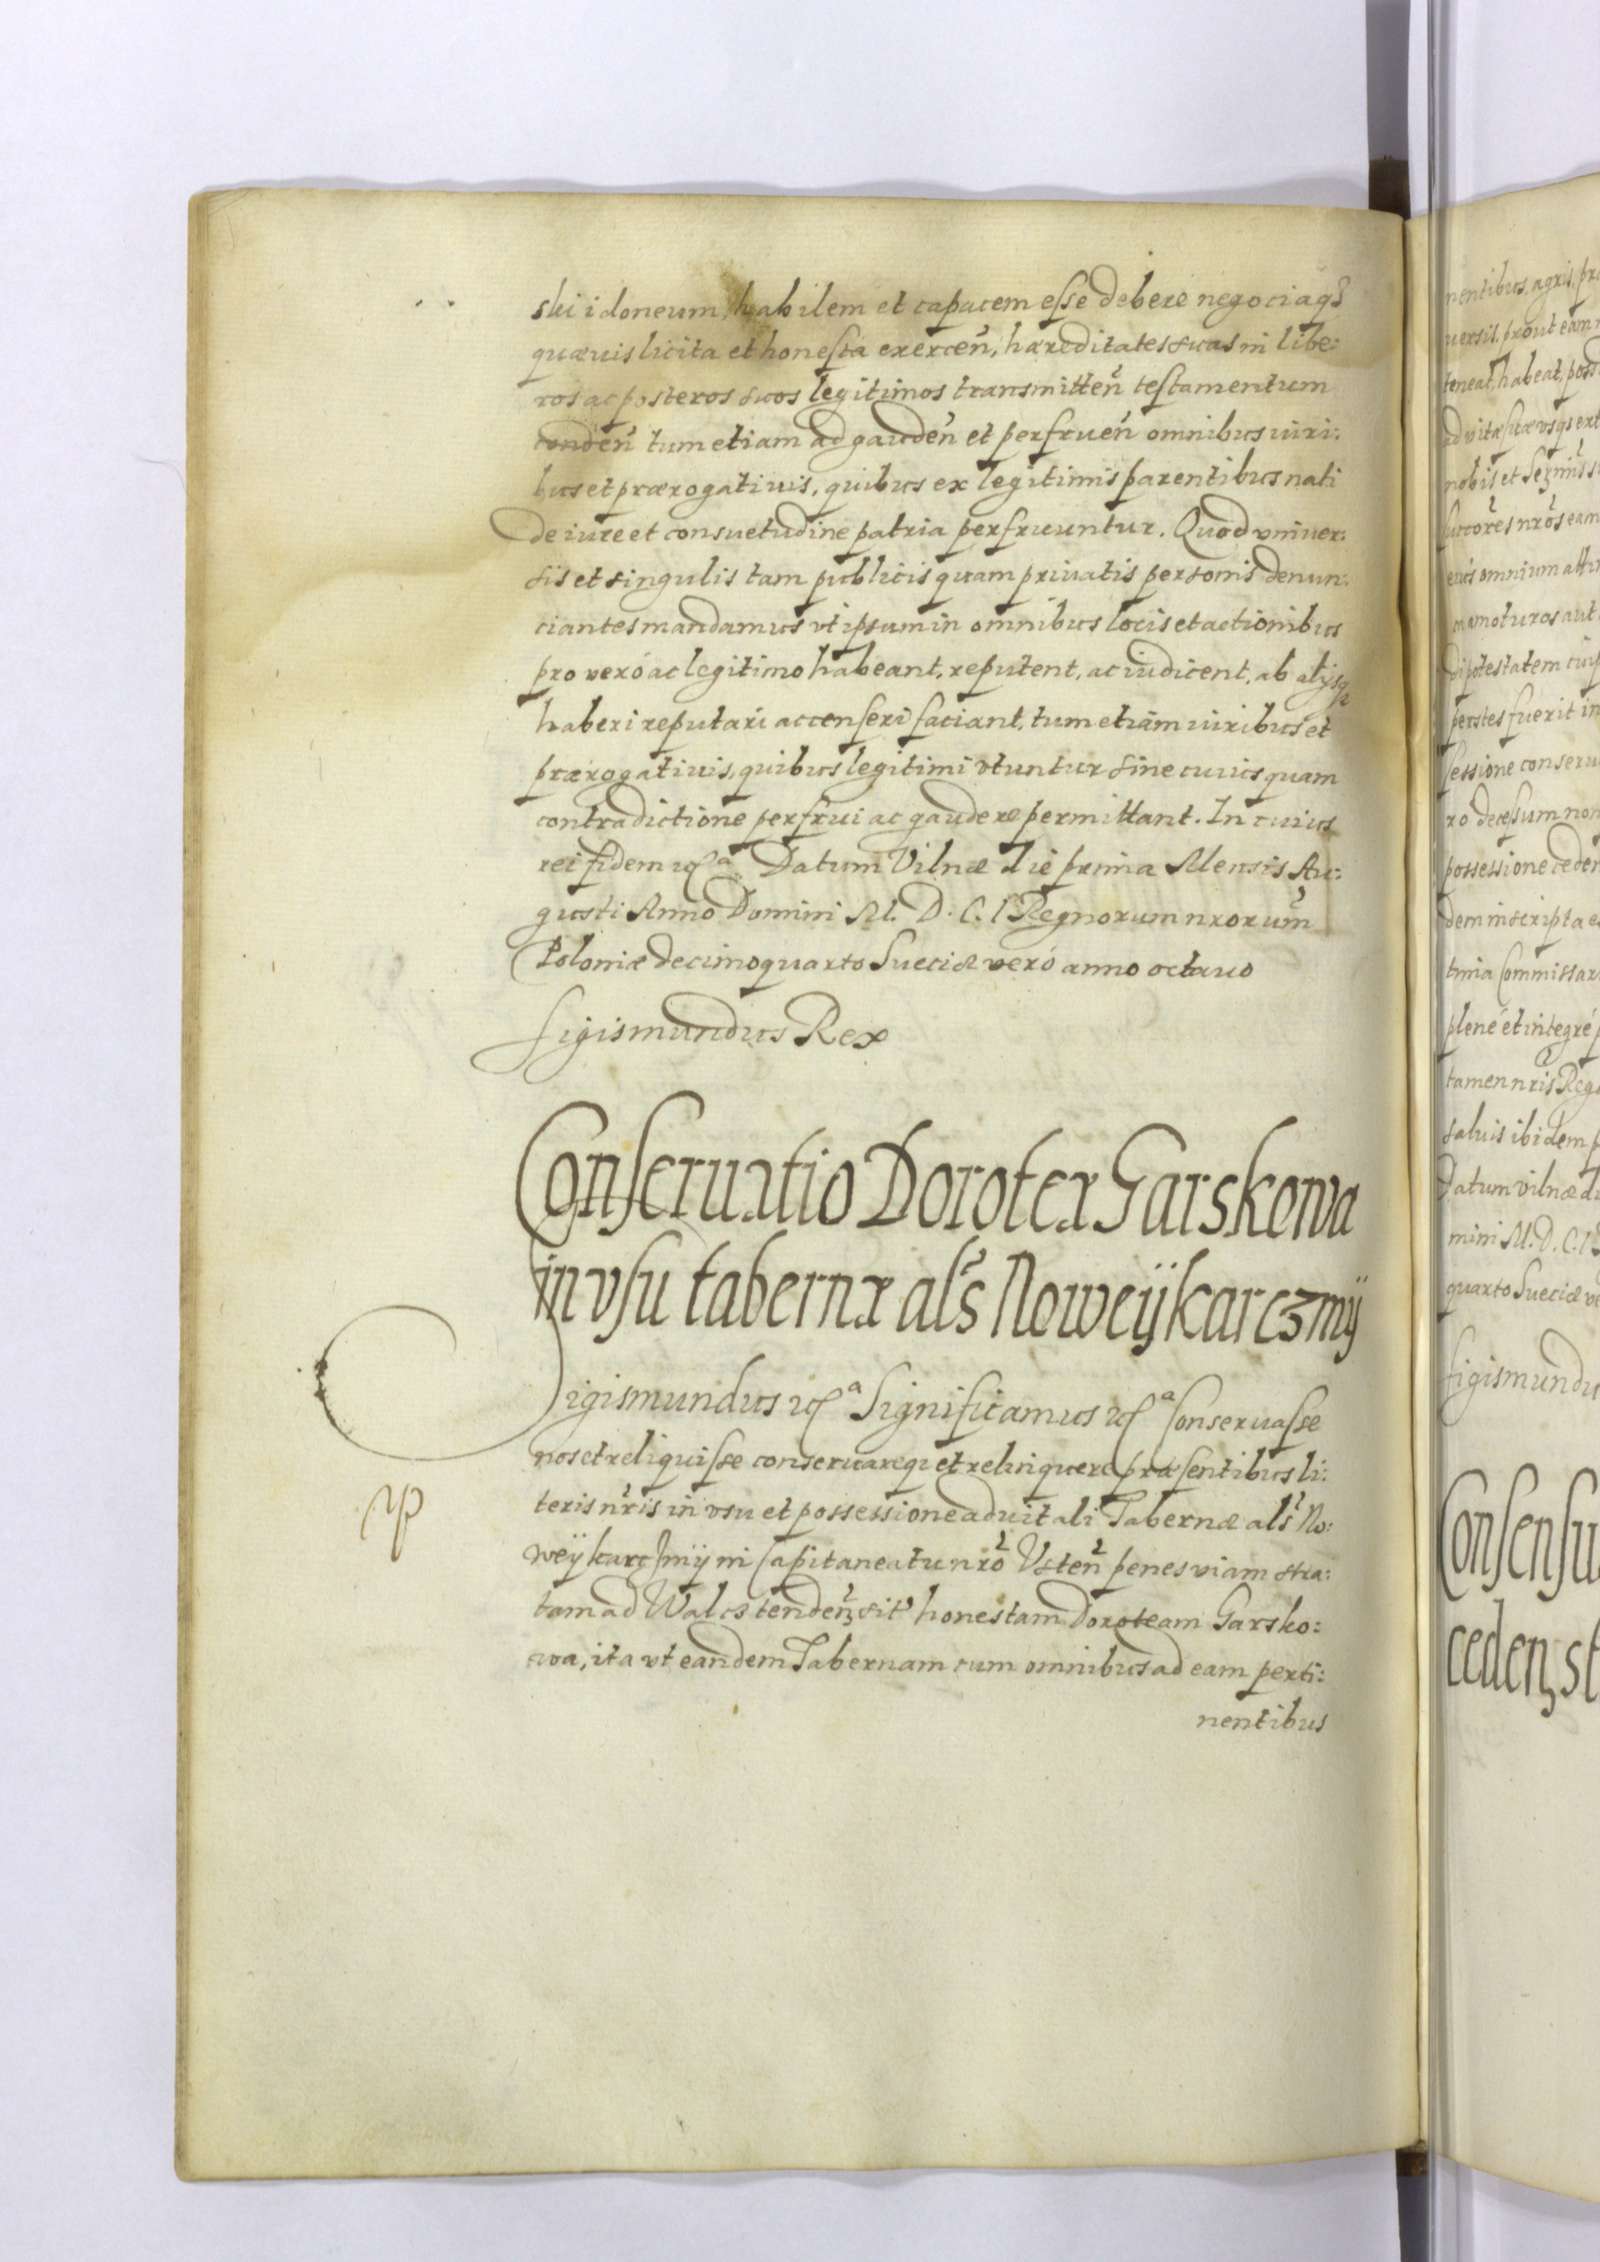 ski idoneum, habilem et capacem esse debere negociaq₃
quævis licita et honesta exercen̄, hæreditates suas in libe:
ros ac posteros suos legitimos transmitten̄ testamentum
conden̄ tum etiam ad gauden̄ et perfruen̄ omnibus iuri:
bus et prærogativis, quibus ex legitimis parentibus nati
de iure et consuetudine patria perfruuntur. Quod vniver:
sis et singulis tam publicis quam privatis personis denun:
ciantes mandamus vt ipsum in omnibus locis et actionibus
pro veró ac legitimo habeant, reputent, ac iudicent, ab alijsq₃
haberi reputari accenseri faciant, tum etiam iuribus et
prærogativis, quibus legitimi vtuntur sine cuiusquam
contradictione perfrui ac gaudere permittant. In cuius
rei fidem ꝛcª Datum Vilnæ die prima Mensis Au:
gusti Anno Domini M. D. C. I Regnorum nrorum̄
Poloniæ decimoquarto Sueciæ veró anno octavo
Sigismundus Rex
Conservatio Doroteæ Garskowa
in vsu tabernæ als̄ Noweÿ karczmÿ
Sigismundus ꝛcª Significamus ꝛcª Conservasse
nos et reliquisse conservareq₃ et relinquere præsentibus li:
teris nr̄is in vsu et possessione advitali Tabernæ als̄ No:
weÿ karczmÿ in Capitaneatu nrō Vsten̄ penes viam stra:
tam ad Walcz tenden₃ sit' honestam Doroteam Garsko:
wa, ita vt eandem Tabernam cum omnibus ad eam perti:
nentibus
nentibus, agris, pra
versis, prout eam
teneat, habeat, poss
ad vitæ suæ vsq₃ ext
nobis et Ser̄mis s
succōres nrōs eam
eius omnium
amoturos aut
di potestatem cuip
perstes fuerit in
sessione conserv
ro decessum non
possessione ceden
dem inscripta e
tima Commissar
plené et integré p
tamen nr̄is Reg
salvis ibidem p
Datum Vilnæ di
mini M. D. C. I
quarto Sueciæ ve
Sigismundu
Consensu
ceden₃ st